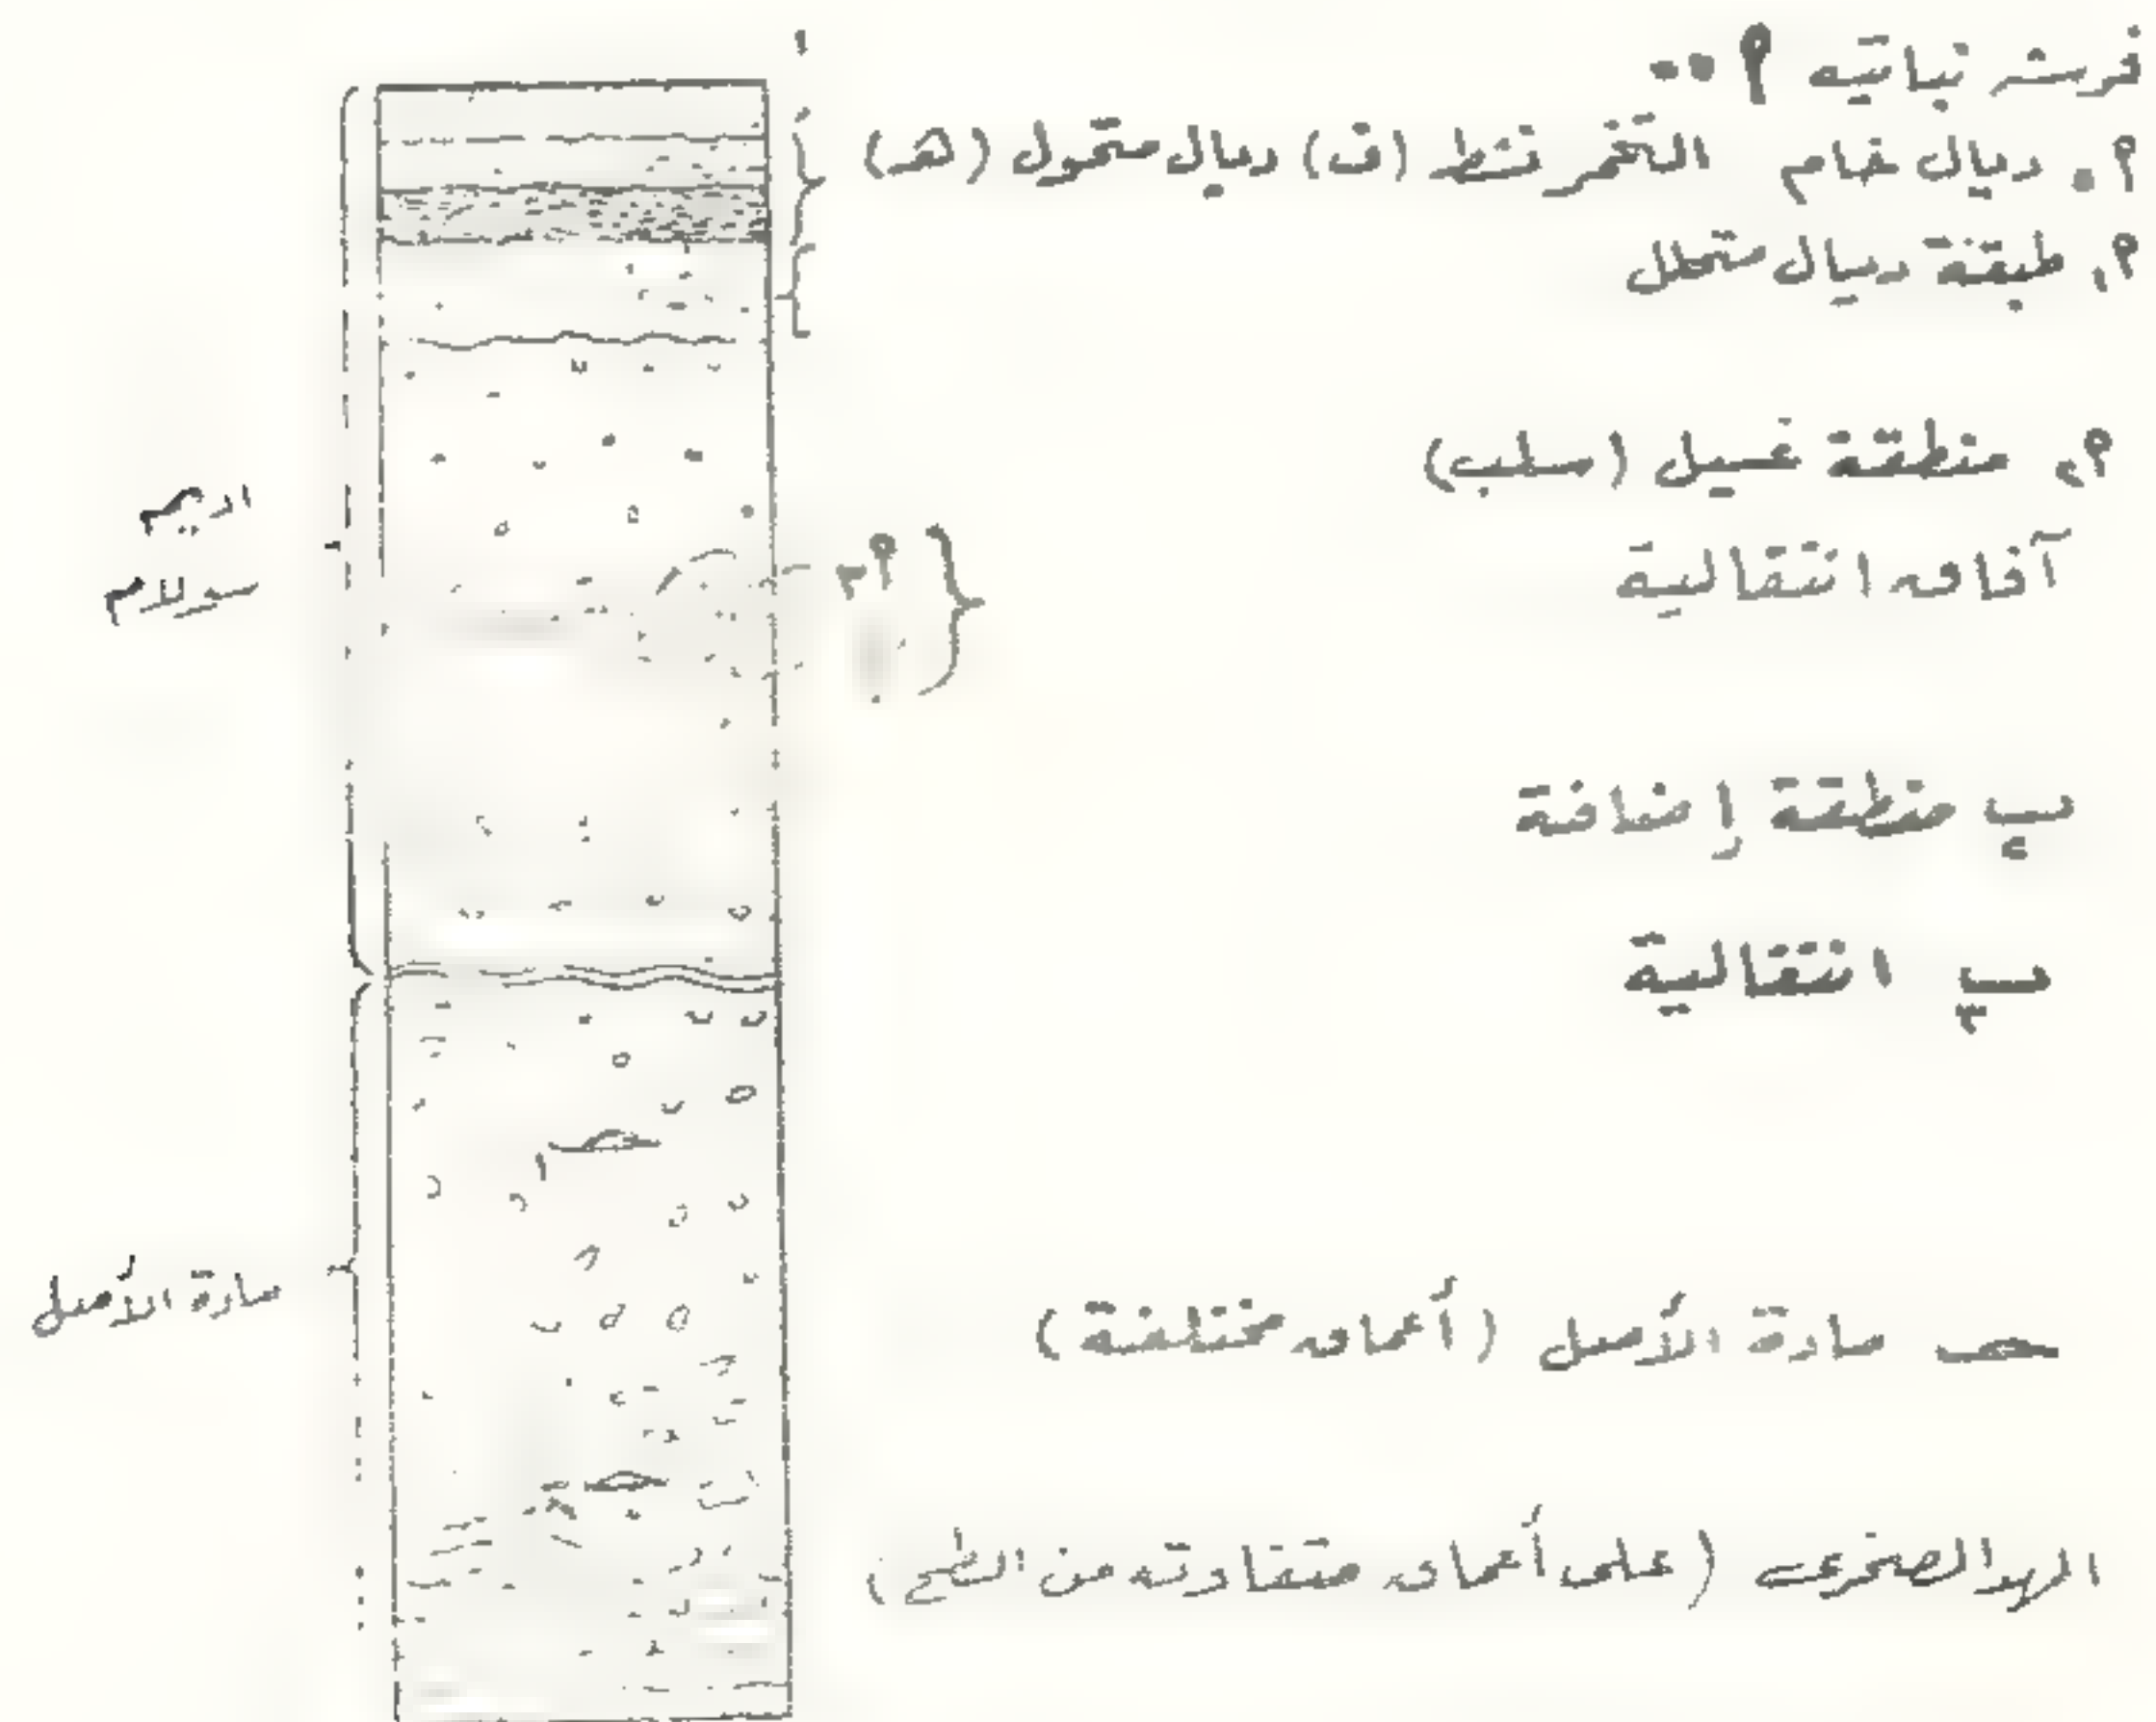 فرشه نباتيه أ..
أ. دبال خام التخمر نشط (ف) دبال متحول (هـ)
أ١ طبقة دبال متحلل
أ٢ منطقة غسيل (سلب)
آفاق انتقالية
أ٣
ب٢ منطقة إضافة
ب٣ انتقالية
حـ مادة الأصل (أعماق مختلفة)
المهد الصخرى (على أعماق متفاوتة من السطح)
اديم
سولام
مادة الأصل